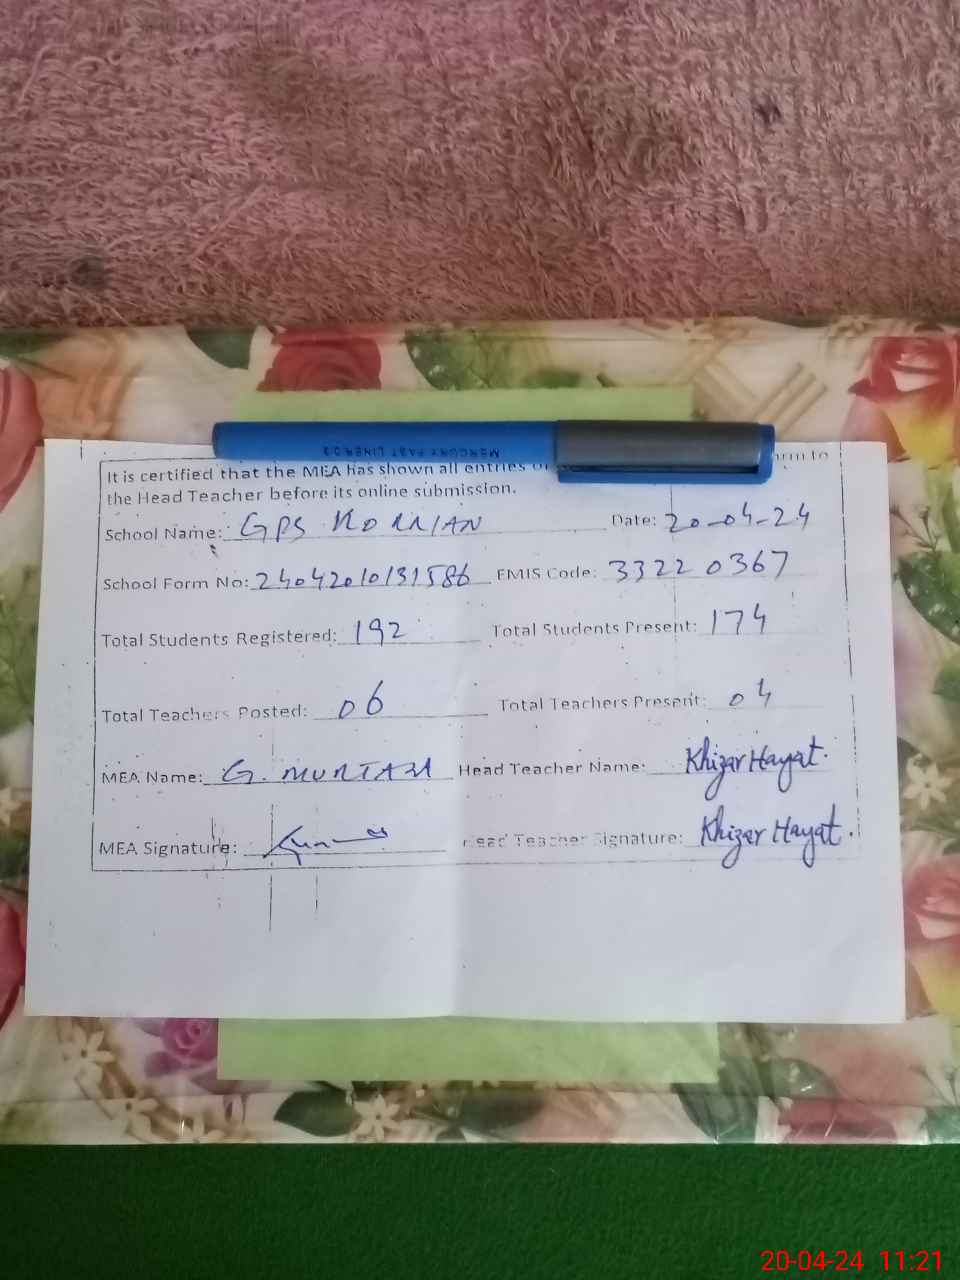 MERCURY FAST LINER 0.2
It is certified that the MEA has shown all entries of rm to
the Head Teacher before its online submission.
School Name: GPS KORRIAN Date: 20-04-24
School Form No: 24042010131586 EMIS Code: 33220367
Total Students Registered: 192 Total Students Present: 174
Total Teachers Posted: 06 Total Teachers Present: 04
MEA Name: G. MURTAZA Head Teacher Name: Khizar Hayat.
MEA Signature: Head Teacher Signature: Khizar Hayat.
20-04-24 11:21